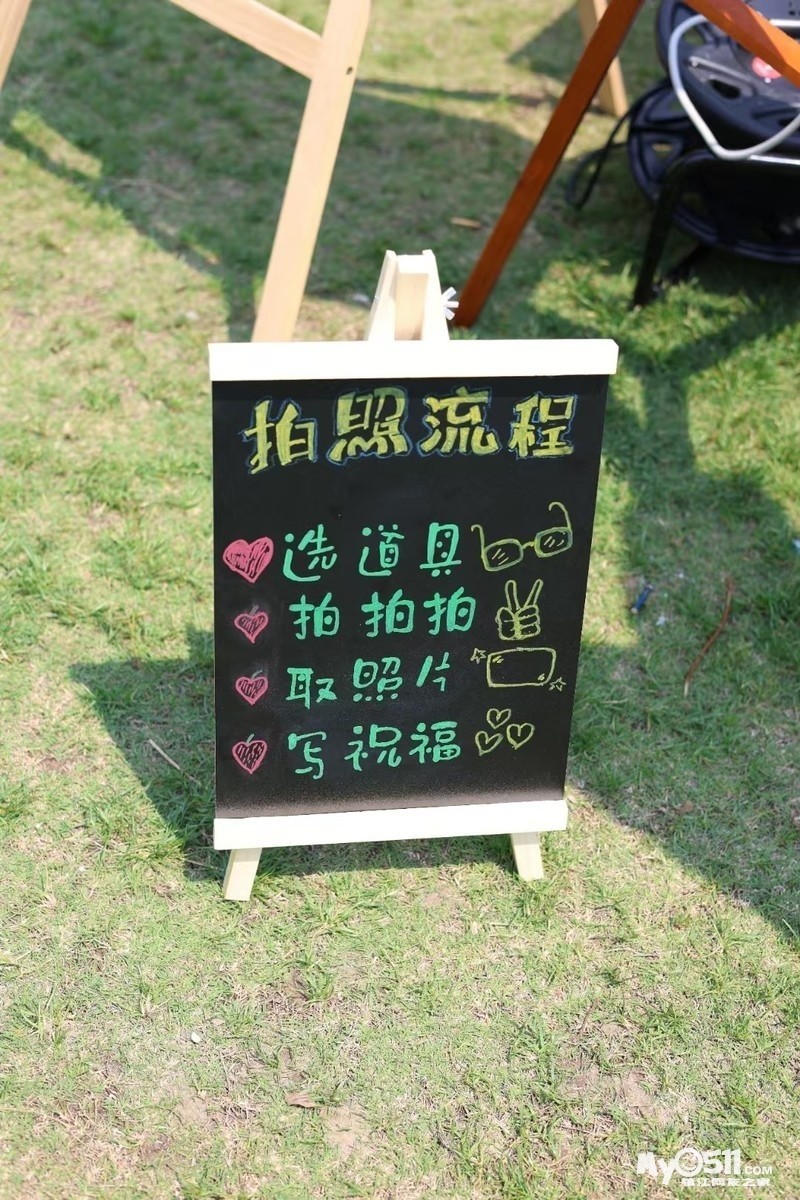 拍照流程
选道具
拍拍拍
取照片
写祝福
MY0511.COM
镇江网友之家